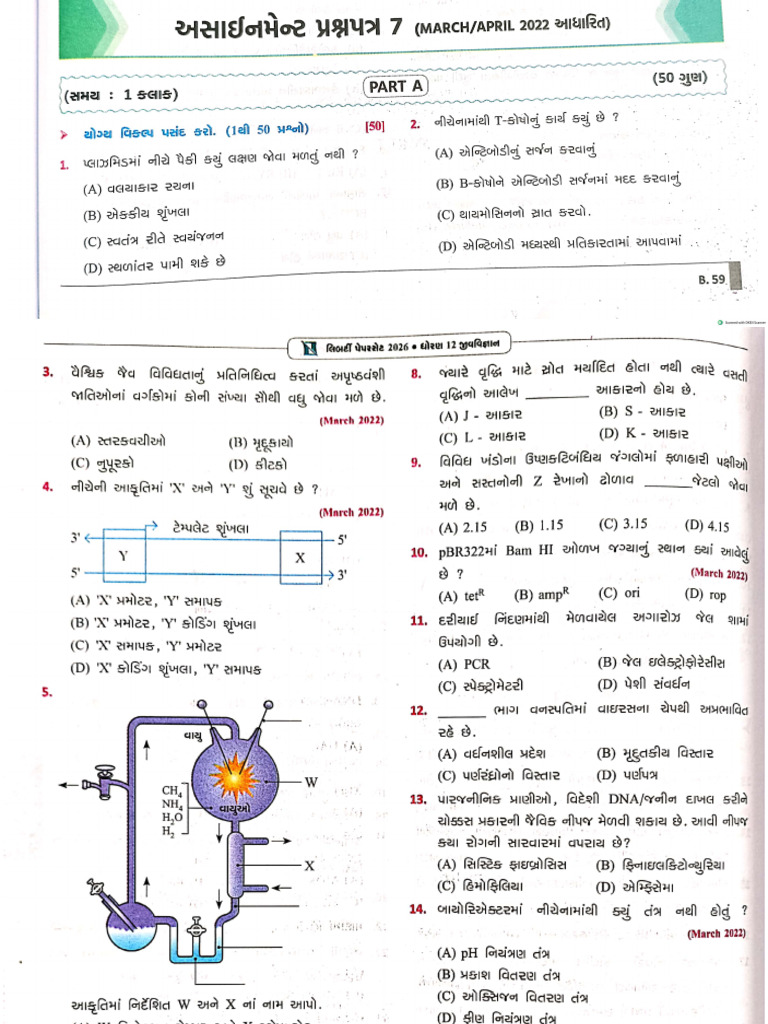 અસાઈનમેન્ટ પ્રશ્નપત્ર 7 (MARCH/APRIL 2022 આધારિત)
(સમય : 1 કલાક)
PART A
(50 ગુણ)
➤ યોગ્ય વિકલ્પ પસંદ કરો. (1થી 50 પ્રશ્નો) [50]
1. પ્લાઝમિડમાં નીચે પૈકી ક્યું લક્ષણ જોવા મળતું નથી ?
(A) વલયાકાર રચના
(B) એકકીય શૃંખલા
(C) સ્વતંત્ર રીતે સ્વયંજનન
(D) સ્થળાંતર પામી શકે છે
2. નીચેનામાંથી T-કોષોનું કાર્ય ક્યું છે ?
(A) એન્ટિબોડીનું સર્જન કરવાનું
(B) B-કોષોને એન્ટિબોડી સર્જનમાં મદદ કરવાનું
(C) થાયમોસિનનો સ્રાત કરવો.
(D) એન્ટિબોડી મધ્યસ્થી પ્રતિકારતામાં આપવામાં
B. 59
Scanned with OKEN Scanner
લિબર્ટી પેપરસેટ 2026 • ધોરણ 12 જીવવિજ્ઞાન
3. વૈશ્વિક જૈવ વિવિધતાનું પ્રતિનિધિત્વ કરતાં અપૃષ્ઠવંશી
જાતિઓનાં વર્ગકોમાં કોની સંખ્યા સૌથી વધુ જોવા મળે છે.
(March 2022)
(A) સ્તરકવચીઓ (B) મૃદૂકાયો
(C) નુપૂરકો (D) કીટકો
4. નીચેની આકૃતિમાં 'X' અને 'Y' શું સૂચવે છે ?
(March 2022)
ટેમ્પલેટ શૃંખલા
3' 5'
Y X
5' 3'
(A) 'X' પ્રમોટર, 'Y' સમાપક
(B) 'X' પ્રમોટર, 'Y' કોડિંગ શૃંખલા
(C) 'X' સમાપક, 'Y' પ્રમોટર
(D) 'X' કોડિંગ શૃંખલા, 'Y' સમાપક
5.
વાયુ
W
CH4
NH4
H2O
H2
વાયુઓ
X
આકૃતિમાં નિર્દેશિત W અને X નાં નામ આપો.
8. જ્યારે વૃદ્ધિ માટે સ્રોત મર્યાદિત હોતા નથી ત્યારે વસતી
વૃદ્ધિનો આલેખ ________ આકારનો હોય છે.
(A) J - આકાર (B) S - આકાર
(C) L - આકાર (D) K - આકાર
9. વિવિધ ખંડોના ઉષ્ણકટિબંધિય જંગલોમાં ફળાહારી પક્ષીઓ
અને સસ્તનોની Z રેખાનો ઢોળાવ ________ જેટલો જોવા
મળે છે.
(A) 2.15 (B) 1.15 (C) 3.15 (D) 4.15
10. pBR322માં Bam HI ઓળખ જગ્યાનું સ્થાન ક્યાં આવેલું
છે ? (March 2022)
(A) tetR (B) ampR (C) ori (D) rop
11. દરીયાઈ નિંદણમાંથી મેળવાયેલ અગારોઝ જેલ શામાં
ઉપયોગી છે.
(A) PCR (B) જેલ ઇલેક્ટ્રોફોરેસીસ
(C) સ્પેક્ટ્રોમેટરી (D) પેશી સંવર્ધન
12. ________ ભાગ વનસ્પતિમાં વાઇરસના ચેપથી અપ્રભાવિત
રહે છે.
(A) વર્ધનશીલ પ્રદેશ (B) મૃદુતકીય વિસ્તાર
(C) પર્ણરંધ્રોનો વિસ્તાર (D) પર્ણપત્ર
13. પારજનીનિક પ્રાણીઓ, વિદેશી DNA/જનીન દાખલ કરીને
ચોક્કસ પ્રકારની જૈવિક નીપજ મેળવી શકાય છે. આવી નીપજ
કયા રોગની સારવારમાં વપરાય છે?
(A) સિસ્ટિક ફાઇબ્રોસિસ (B) ફિનાઇલકિટોન્યુરિયા
(C) હિમોફિલિયા (D) એમ્ફિસેમા
14. બાયોરિએક્ટરમાં નીચેનામાંથી ક્યું તંત્ર નથી હોતું ?
(March 2022)
(A) pH નિયંત્રણ તંત્ર
(B) પ્રકાશ વિતરણ તંત્ર
(C) ઓક્સિજન વિતરણ તંત્ર
(D) ફીણ નિયંત્રણ તંત્ર